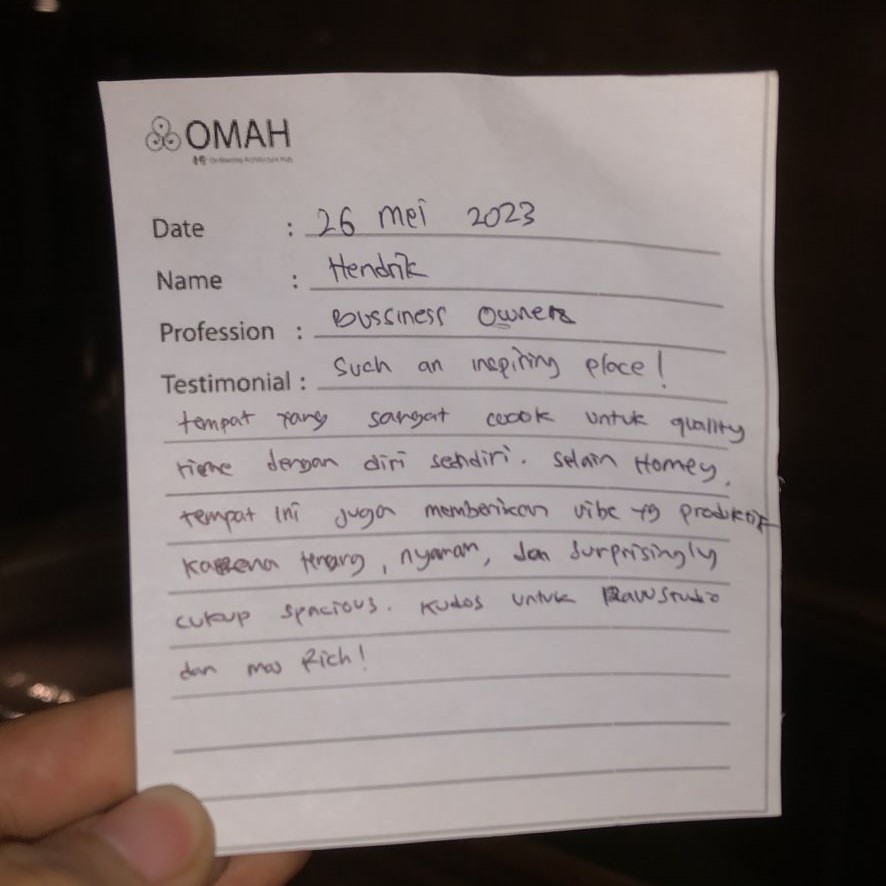 OMAH
Date : 26 Mei 2023
Name : Hendrik
Profession : Bussiness Owners
Testimonial : Such an inspiring place!
tempat yang sangat cocok untuk quality
time dengan diri sendiri. Selain Homey,
tempat ini juga memberikan vibe yg produktif
karena tenang, nyaman, dan surprisingly
cukup spacious. Kudos untuk RawStudio
dan mas Rich!